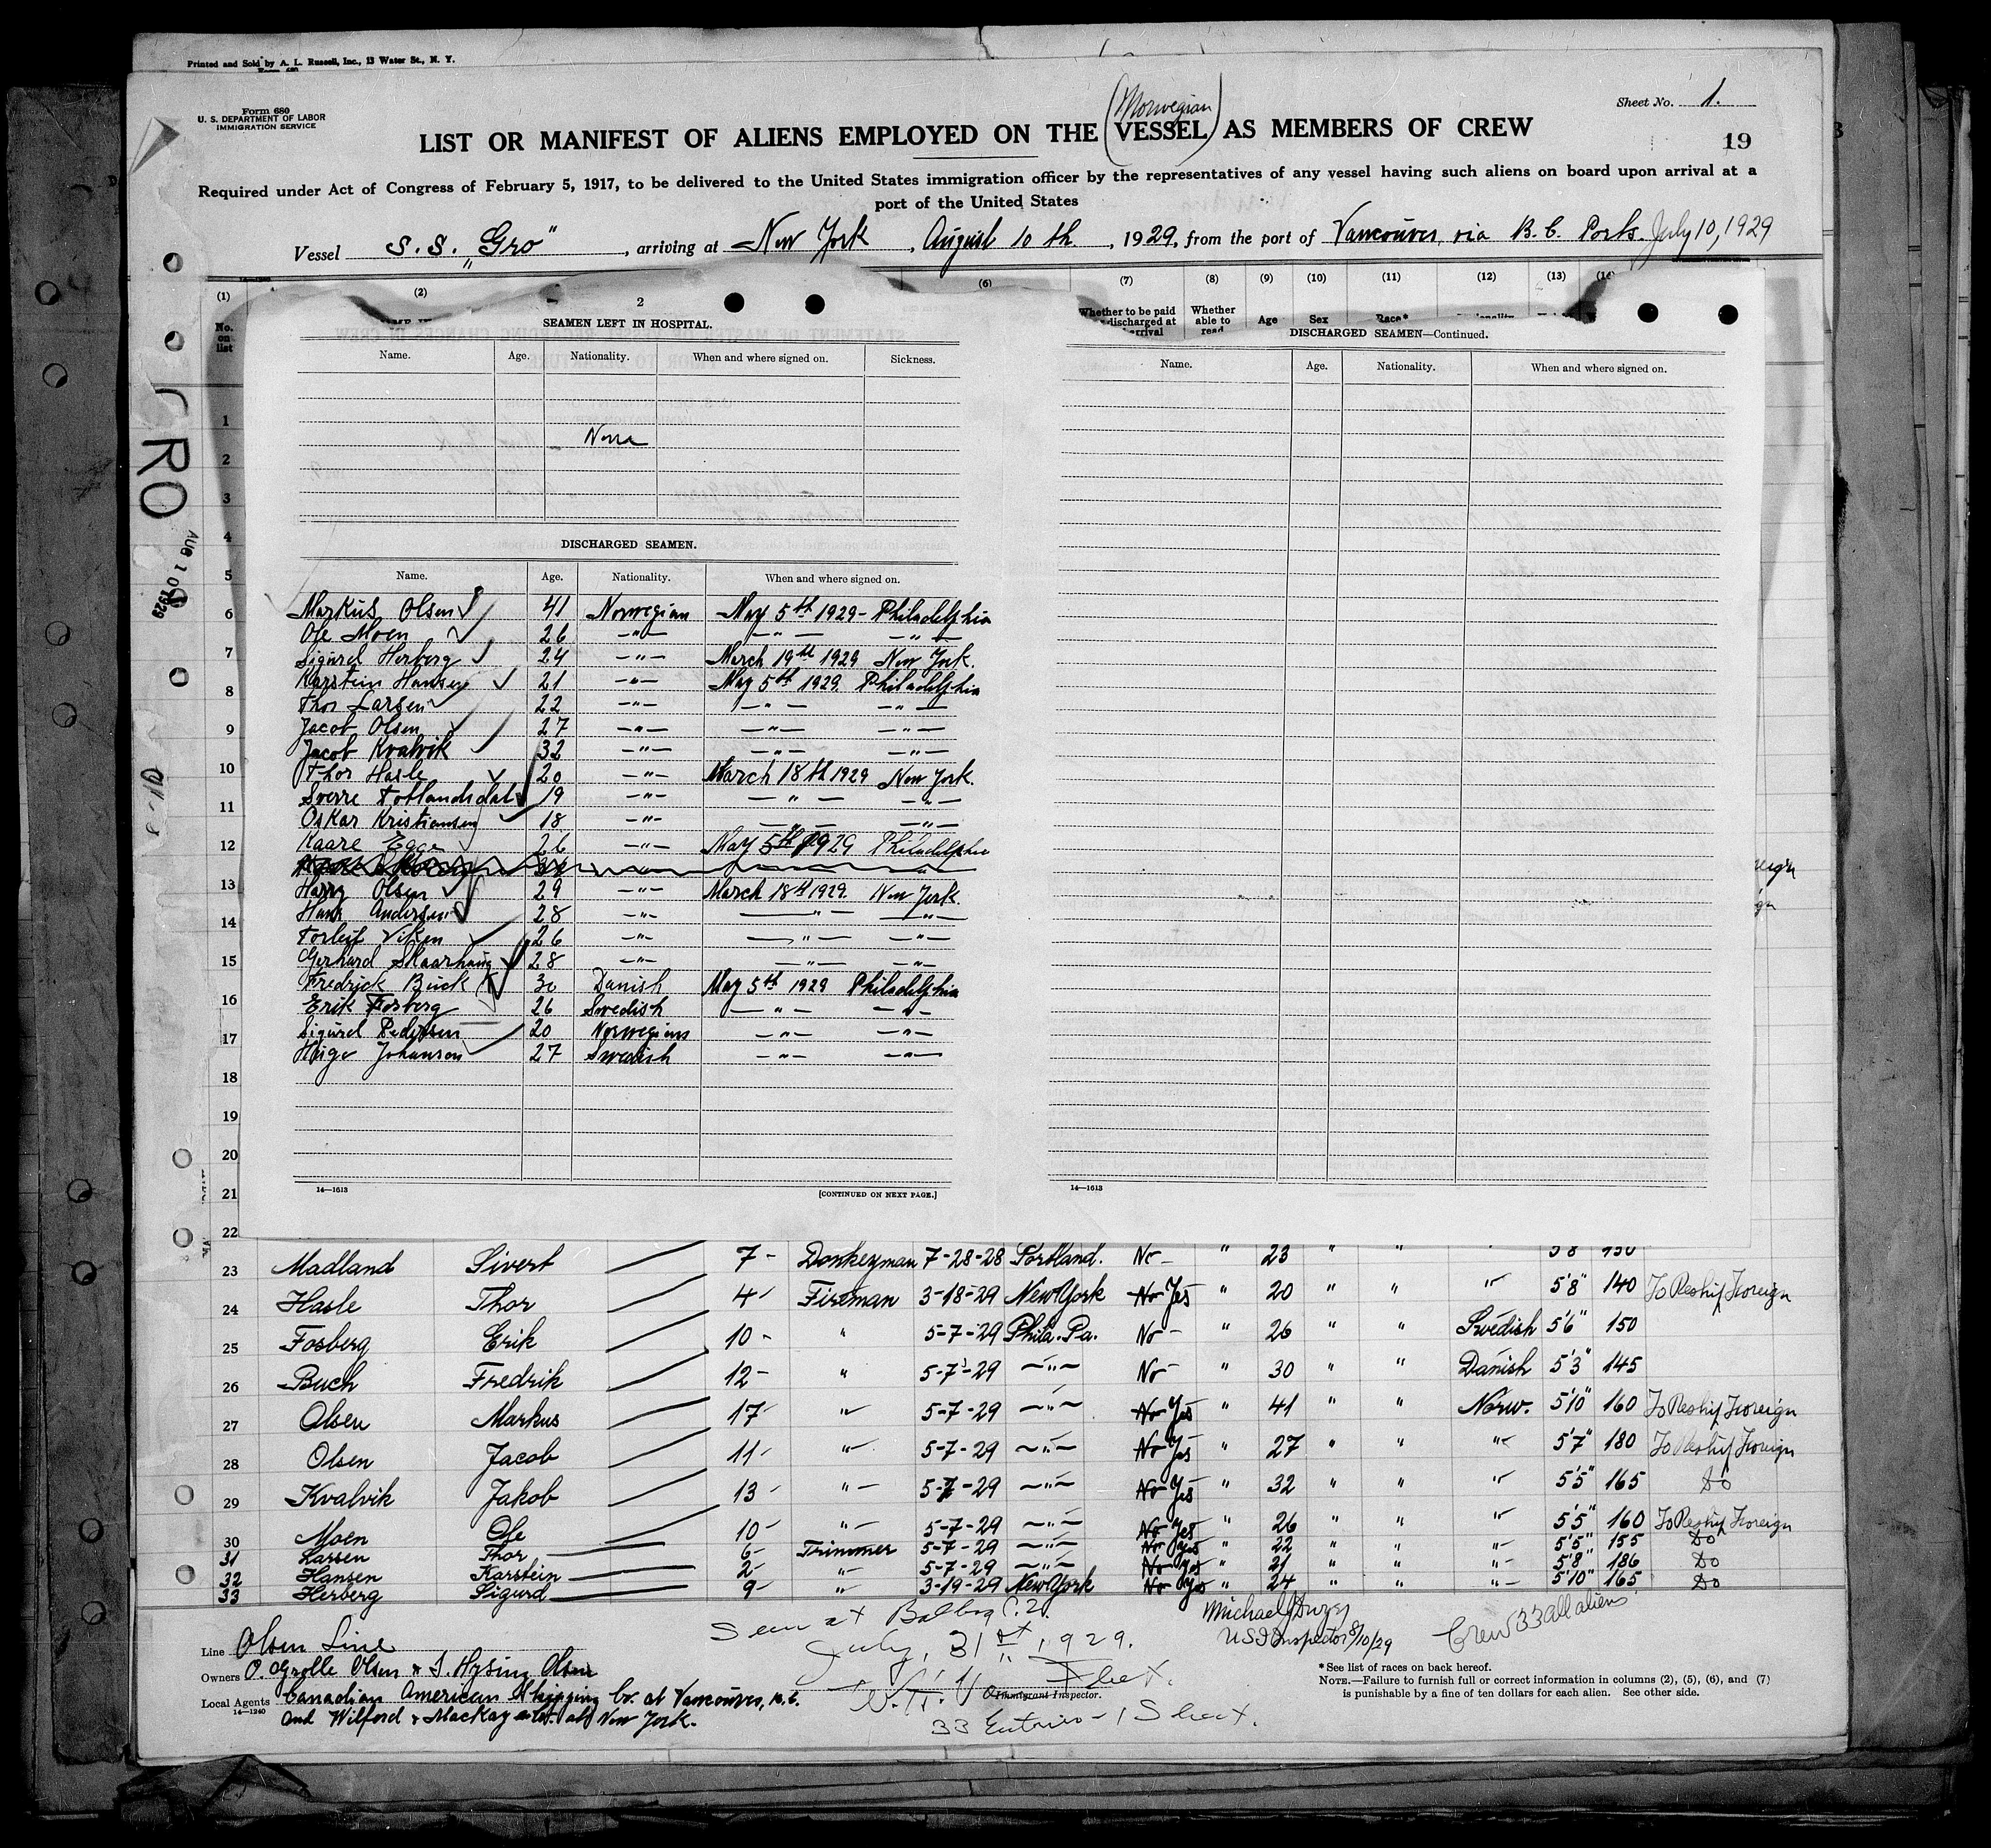 Printed and Sold by A. L. Russell, Inc., 13 Water St., N. Y.
Form 680
U. S. DEPARTMENT OF LABOR
IMMIGRATION SERVICE
Sheet No. 1.
(Norwegian)
LIST OR MANIFEST OF ALIENS EMPLOYED ON THE VESSEL AS MEMBERS OF CREW
19
Required under Act of Congress of February 5, 1917, to be delivered to the United States immigration officer by the representatives of any vessel having such aliens on board upon arrival at a
port of the United States
Vessel S.S. "Gro", arriving at New York, August 10 th, 1929, from the port of Vancouver via B.C. Ports. July 10, 1929
(1) (2) (6) (7) (8) (9) (10) (11) (12) (13)
No. on list
Whether to be paid discharged at arrival
Whether able to read
Age Sex Race*
GRO
AUG 10 1929
2
SEAMEN LEFT IN HOSPITAL.
Name. Age. Nationality. When and where signed on. Sickness.
None
DISCHARGED SEAMEN.
Name. Age. Nationality. When and where signed on.
Markus Olsen 41 Norwegian May 5th 1929 - Philadelphia
Ole Moen 26 —"— —"— —"—
Sigurd Herberg 24 —"— March 19th 1929 New York.
Karstein Hansen 21 —"— May 5th 1929. Philadelphia
Thor Larsen 22 —"— —"— —"—
Jacob Olsen 27 —"— —"— —"—
Jacob Kvalvik 32 —"— —"— —"—
Thor Hasle 20 —"— March 18th 1929 New York.
Sverre Totlandsdal 19 —"— —"— —"—
Oskar Kristiansen 18 —"— —"— —"—
Kaare Egge 26 —"— May 5th 1929 Philadelphia
Harry Olsen 29 —"— March 18th 1929. New York.
Hans Andersen 28 —"— —"— —"—
Torleif Viken 26 —"— —"— —"—
Gerhard Skaarhaug 28 —"— —"— —"—
Fredrick Buck 30 Danish May 5th 1929 Philadelphia
Erik Forsberg 26 Swedish —"— —"—
Sigurd Pedersen 20 Norwegian —"— —"—
Hugo Johanson 27 Swedish —"— —"—
14—1613
[CONTINUED ON NEXT PAGE.]
DISCHARGED SEAMEN—Continued.
Name. Age. Nationality. When and where signed on.
14—1613
1
2
3
4
5
6
7
8
9
10
11
12
13
14
15
16
17
18
19
20
21
22
23 Madland Sivert 7 - Donkeyman 7-28-28 Portland. No - " 23 " " 5'8 150
24 Hasle Thor 4 - Fireman 3-18-29 New York No Yes " 20 " " " 5'8" 140 To Reship Foreign
25 Fosberg Erik 10 - " 5-7-29 Phila. Pa. No - " 26 " " Swedish 5'6" 150
26 Buch Fredrik 12 - " 5-7-29 —"— No - " 30 " " Danish 5'3" 145
27 Olsen Markus 17 - " 5-7-29 —"— No Yes " 41 " " Norw. 5'10" 160 To Reship Foreign
28 Olsen Jacob 11 - " 5-7-29 —"— No Yes " 27 " " " 5'7" 180 To Reship Foreign
29 Kvalvik Jakob 13 - " 5-7-29 —"— No Yes " 32 " " " 5'5" 165 Do
30 Moen Ole 10 - " 5-7-29 —"— No Yes " 26 " " " 5'5" 160 To Reship Foreign
31 Larsen Thor 6 - Trimmer 5-7-29 —"— No Yes " 22 " " " 5'5" 155 Do
32 Hansen Karstein 2 - " 5-7-29 —"— No Yes " 21 " " " 5'8" 186 Do
33 Herberg Sigurd 9 - " 3-19-29 New York No Yes " 24 " " " 5'10" 165 Do
Seen at Balboa C.Z.
July, 31st, 1929.
Immigrant Inspector.
33 Entries - 1 Sheet.
Michael
USI Inspector 8/10/29
Crew 33 all aliens
Line Olsen Line
Owners O. Grolle Olsen & I. Hysing Olsen
Local Agents Canadian American Shipping Co. at Vancouver, B.C.
and Wilford & MacKay at New York.
14—1240
* See list of races on back hereof.
NOTE.—Failure to furnish full or correct information in columns (2), (5), (6), and (7)
is punishable by a fine of ten dollars for each alien. See other side.